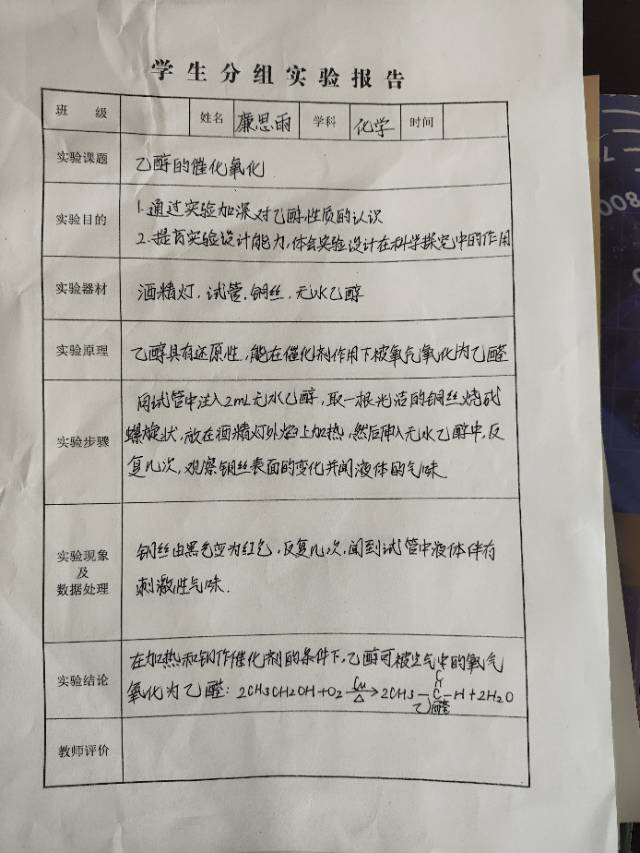 学生分组实验报告
班 级 姓名 廉思雨 学科 化学 时间
实验课题 乙醇的催化氧化
实验目的 1.通过实验加深对乙醇性质的认识
2.提高实验设计能力,体会实验设计在科学探究中的作用
实验器材 酒精灯,试管,铜丝,无水乙醇
实验原理 乙醇具有还原性,能在催化剂作用下被氧气氧化为乙醛
实验步骤 向试管中注入2mL无水乙醇,取一根光洁的铜丝烧成
螺旋状,放在酒精灯外焰上加热,然后伸入无水乙醇中,反
复几次,观察铜丝表面的变化并闻液体的气味
实验现象及数据处理 铜丝由黑色变为红色,反复几次,闻到试管中液体伴有
刺激性气味.
实验结论 在加热和铜作催化剂的条件下,乙醇可被空气中的氧气
氧化为乙醛: 2CH3CH2OH+O2 Cu △ → 2CH3-C-H+2H2O
乙醛
教师评价